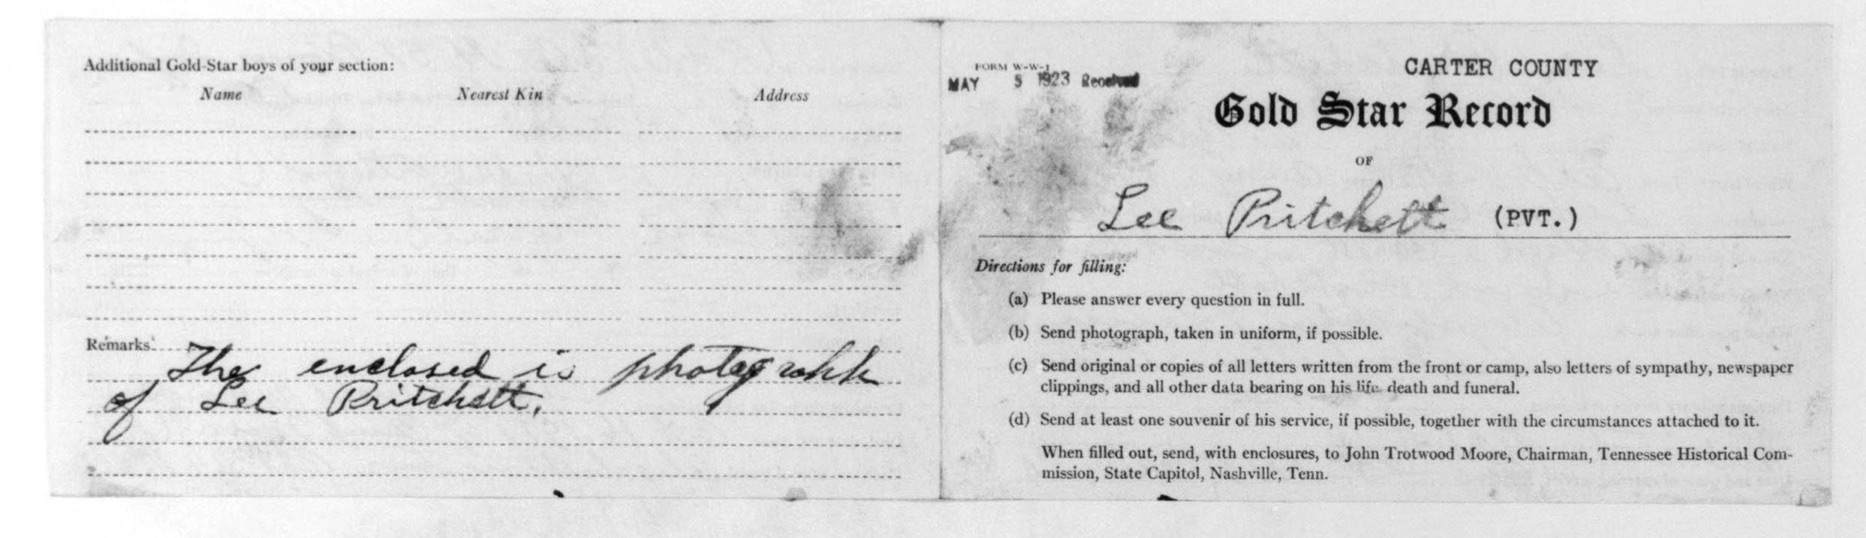 Additional Gold-Star boys of your section:
Name Nearest Kin Address
Remarks:
The enclosed is photograph
of Lee Pritchett.
FORM W-W-1
MAY 5 1923 Received
CARTER COUNTY
Gold Star Record
OF
Lee Pritchett (PVT.)
Directions for filling:
(a) Please answer every question in full.
(b) Send photograph, taken in uniform, if possible.
(c) Send original or copies of all letters written from the front or camp, also letters of sympathy, newspaper
clippings, and all other data bearing on his life death and funeral.
(d) Send at least one souvenir of his service, if possible, together with the circumstances attached to it.
When filled out, send, with enclosures, to John Trotwood Moore, Chairman, Tennessee Historical Com-
mission, State Capitol, Nashville, Tenn.